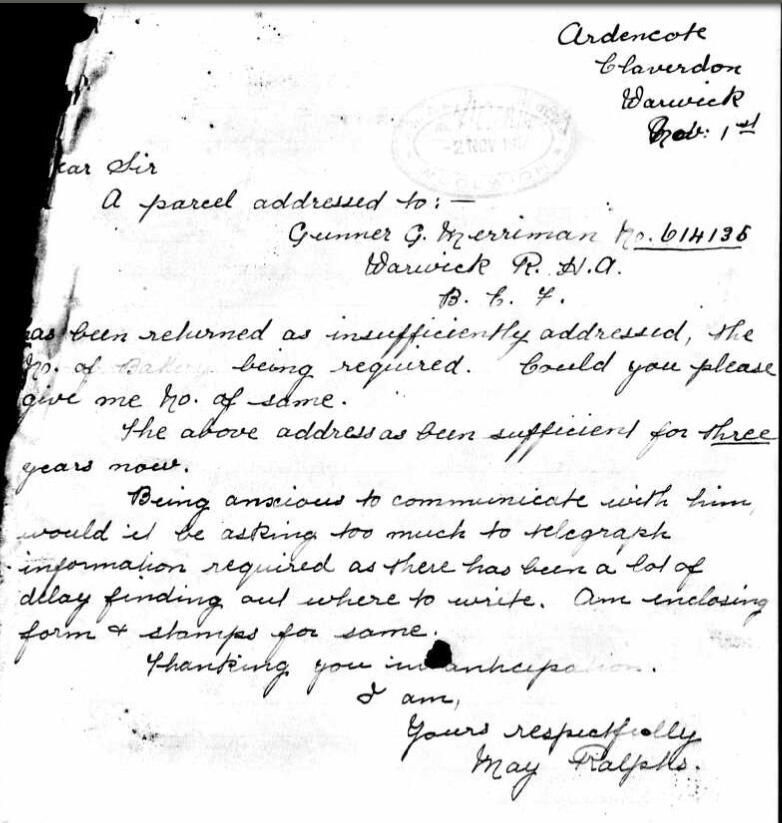 Ardencote
Claverdon
Warwick
Nov: 1st
ear Sir
A parcel addressed to:—
Gunner G. Merriman No. 614135
Warwick R. H. A.
B. E. F.
has been returned as insufficiently addressed, the
No. of Battery being required. Could you please
give me No. of same.
The above address as been sufficient for three
years now.
Being anxious to communicate with him,
would it be asking too much to telegraph
information required as there has been a lot of
delay finding out where to write. Am enclosing
form & stamps for same.
Thanking you in anticipation.
I am,
Yours respectfully
May Ralphs.
-2 NOV